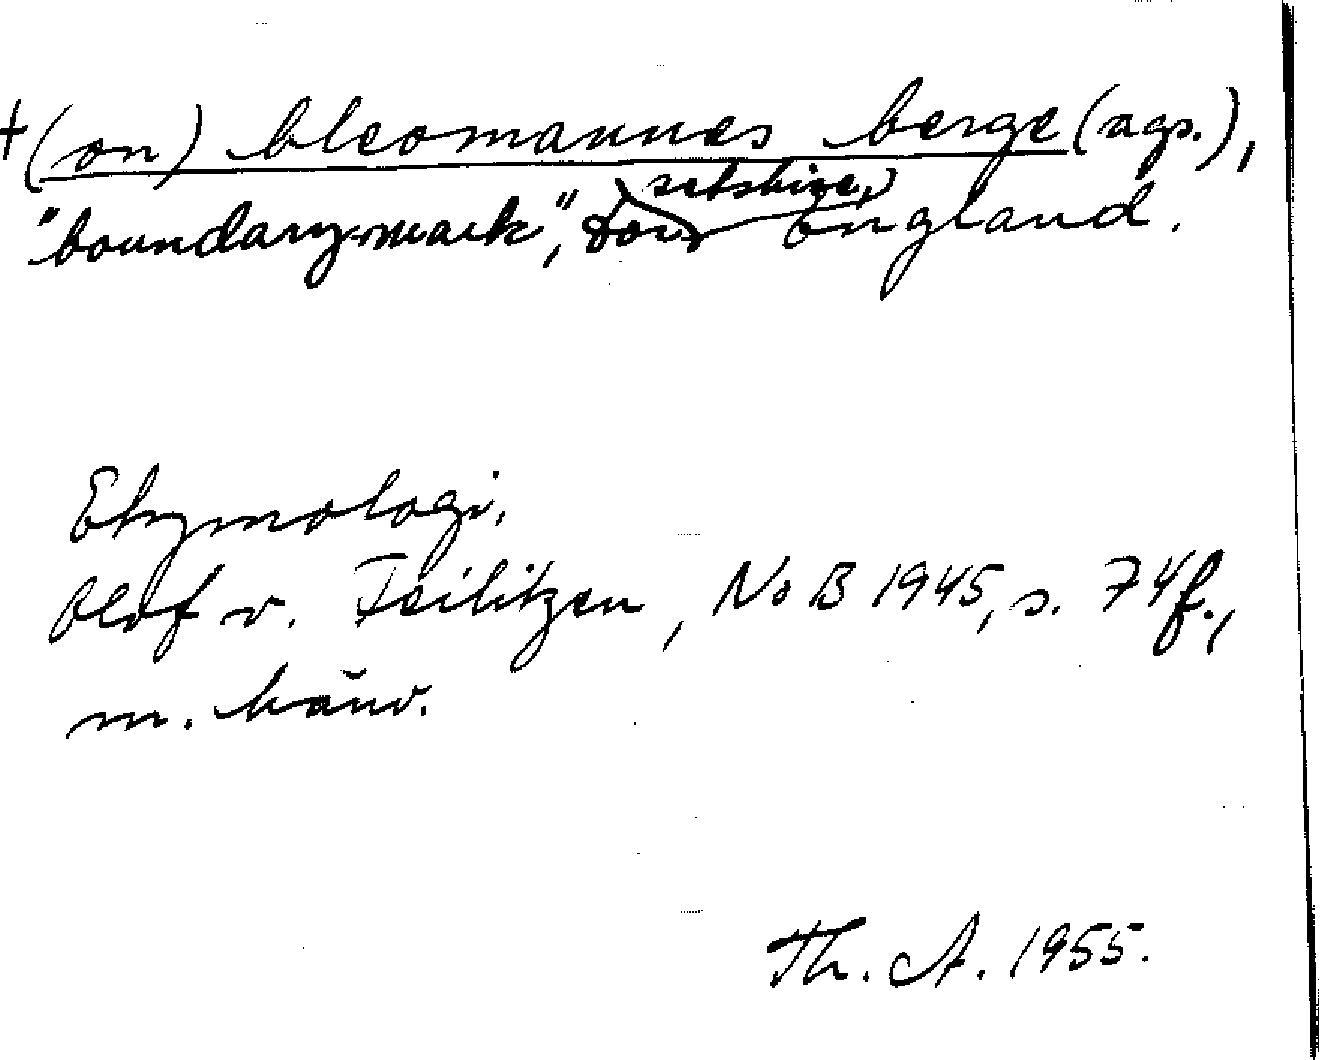 †(on) bleomannes berge (ags.),
"boundary-mark", Dorsetshire, England.
Etymologi.
Olof v. Feilitzen, NoB 1945, s. 74f.,
m. hänv.
Th. A. 1955.